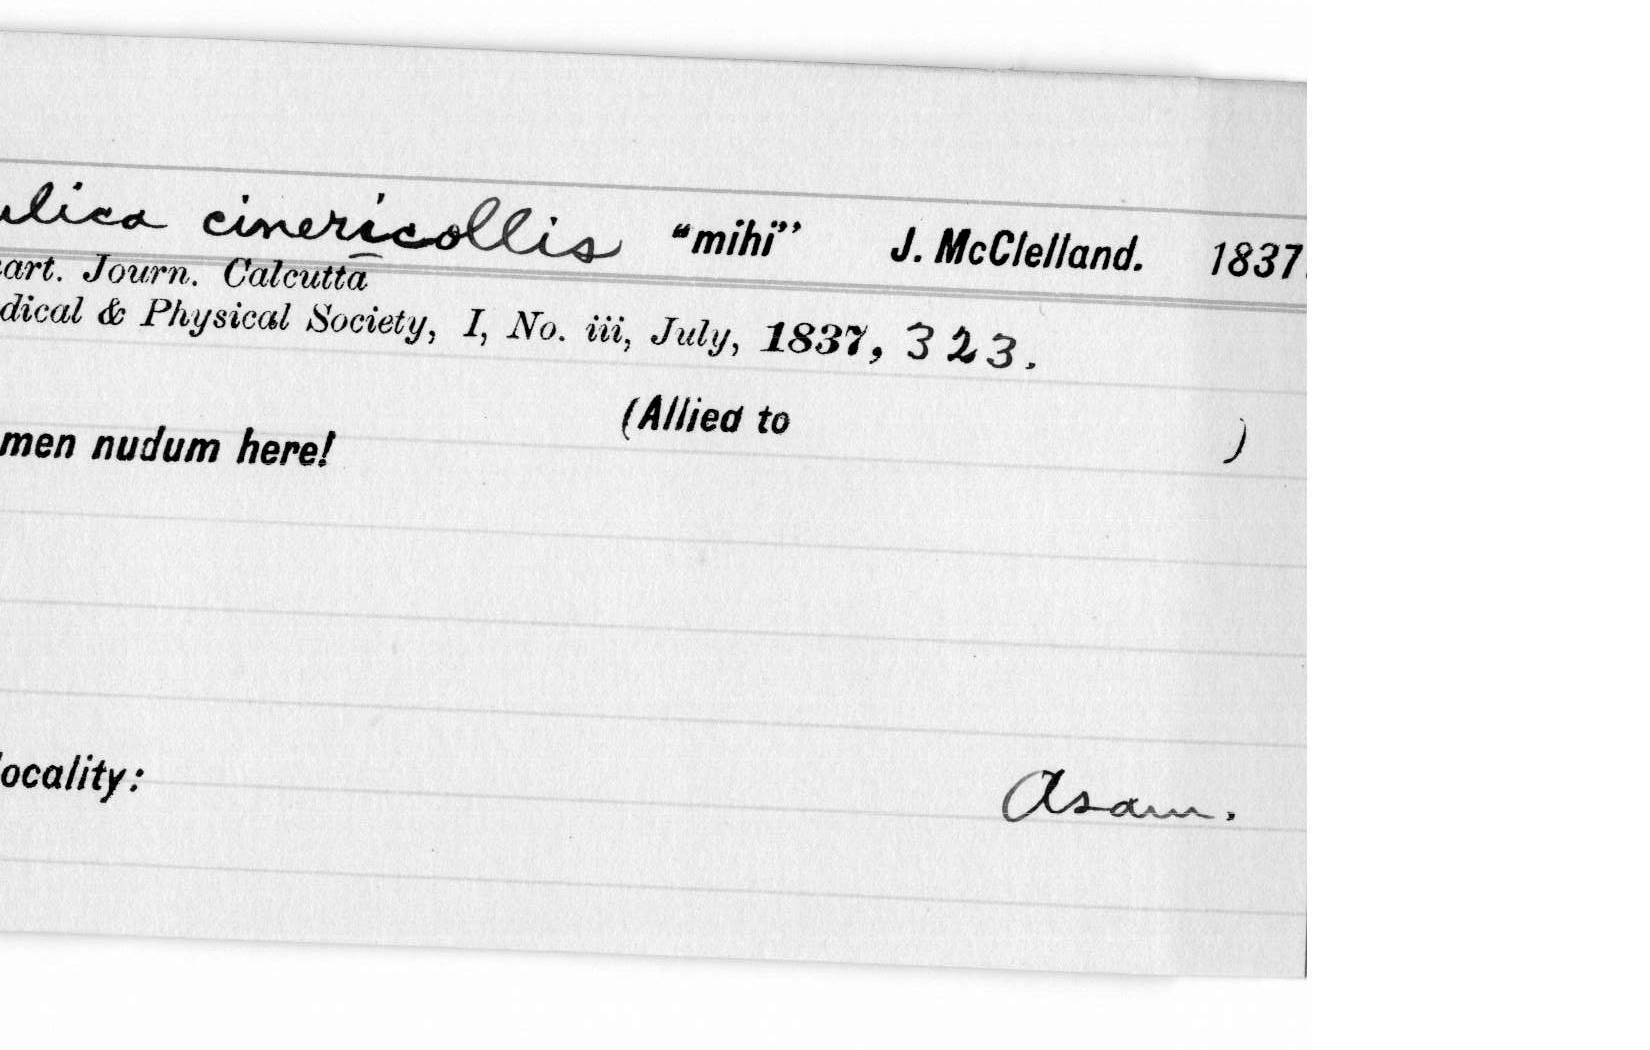 ulica cinericollis “mihi” J. McClelland. 1837.
art. Journ. Calcutta
dical & Physical Society, I, No. iii, July, 1837, 323.
(Allied to )
men nudum here!
locality: Asam.